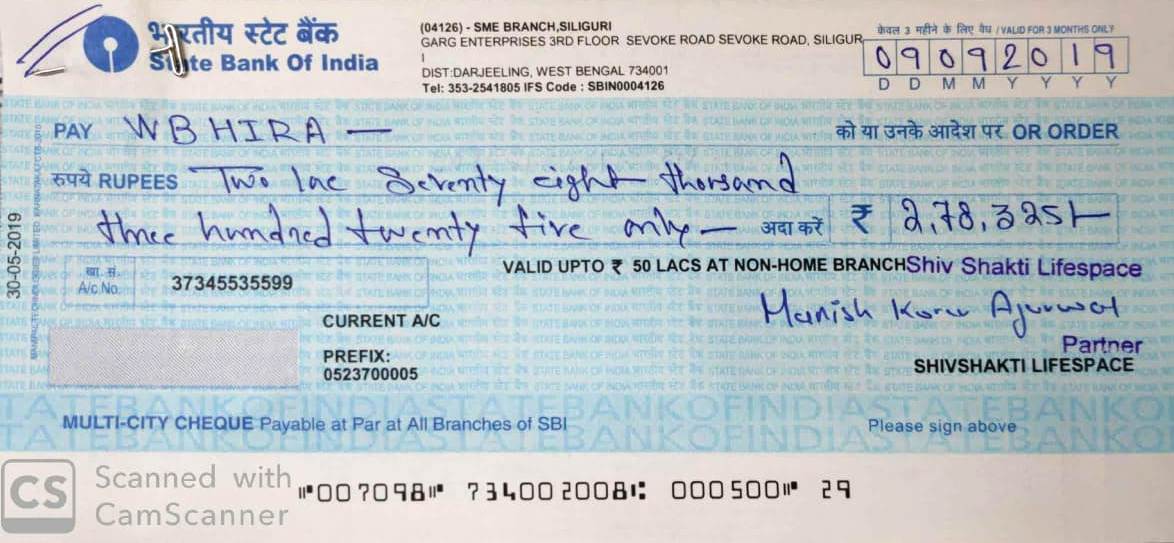 भारतीय स्टेट बैंक
State Bank Of India
(04126) - SME BRANCH,SILIGURI
GARG ENTERPRISES 3RD FLOOR SEVOKE ROAD SEVOKE ROAD, SILIGUR
I
DIST:DARJEELING, WEST BENGAL 734001
Tel: 353-2541805 IFS Code : SBIN0004126
केवल 3 महीने के लिए वैध / VALID FOR 3 MONTHS ONLY
09092019
D D M M Y Y Y Y
PAY WBHIRA —
को या उनके आदेश पर OR ORDER
रुपये RUPEES Two lac Seventy eight thousand
three hundred twenty five only —
अदा करें ₹ 2,78,325/-
30-05-2019
खा. सं.
A/c No. 37345535599
VALID UPTO ₹ 50 LACS AT NON-HOME BRANCH
Shiv Shakti Lifespace
CURRENT A/C
Manish Kumar Agarwal
PREFIX:
0523700005
Partner
SHIVSHAKTI LIFESPACE
STATEBANKOFINDIASTATEBANKO
MULTI-CITY CHEQUE Payable at Par at All Branches of SBI
Please sign above
CS Scanned with
CamScanner
⑈007098⑈ 734002008⑆ 000500⑈ 29